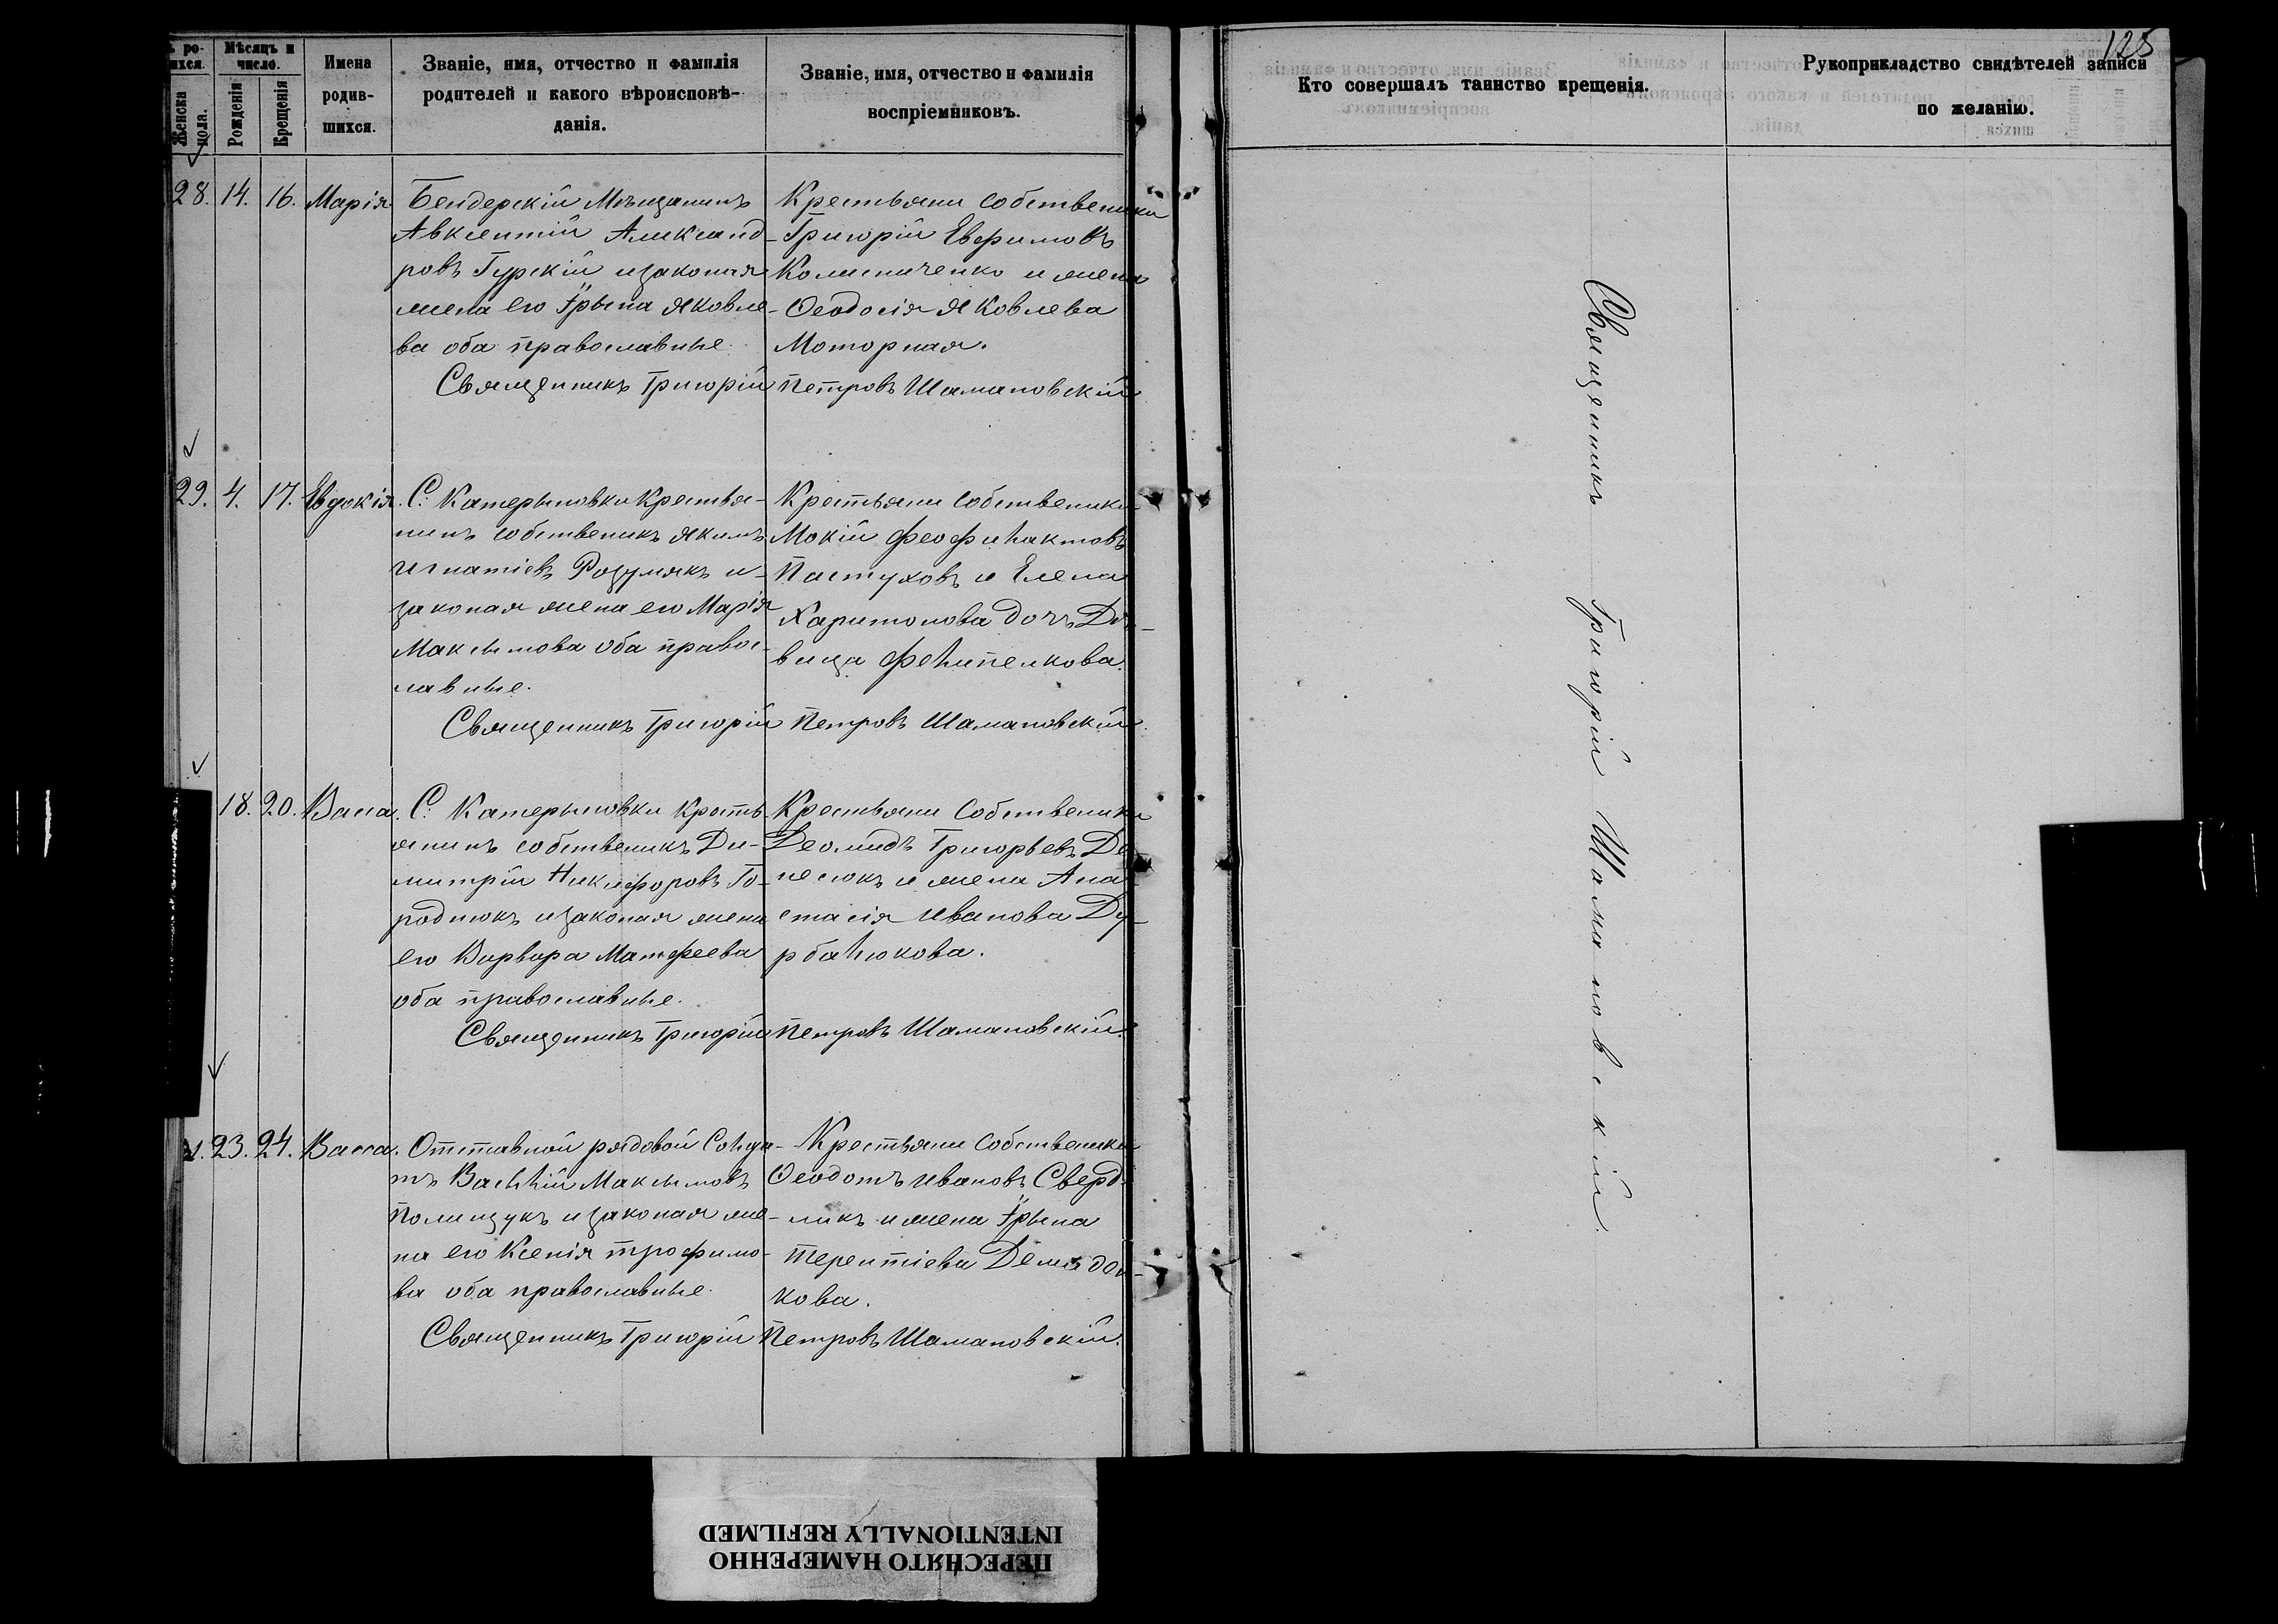 ъ ро-
ихся.
Женска
пола.
Мѣсяцъ и
число.
Рожденія
Крещенія
Имена
родив-
шихся.
Званіе, имя, отчество и фамилія
родителей и какого вѣроисповѣ-
данія.
Званіе, имя, отчество и фамилія
воспріемниковъ.
Кто совершалъ таинство крещенія.
Рукоприкладство свидѣтелей записи
по желанію.
125
28. 14. 16. Марія
Бендерскій Мѣщанинъ
Авксентій Александ-
ровъ Гурскій изаконая
жена его Ірына Яковле-
ва оба православные.
Крестьяни собственики
Григорій Евфимовъ
Колисниченко и жена
Ѳеодосія Яковлева
Моторная.
Священникъ Григорій Петровъ Шамановскій
29. 4. 17. Евдокія.
С. Катерыновки Крестья-
нинъ собственикъ Якимъ
Игнатіевъ Розумякъ и-
законая жена его Марія
Максимова оба правос-
лавные.
Крестьяни собственики
Мокій Феофилактовъ
Пастуховъ и Елена
Харитонова дочъ Дѣ-
вица Фелипенкова.
Священникъ Григорій Петровъ Шамановскій
18. 20. Васса.
С. Катерыновки Кресть
янинъ собственикъ Ди-
митрій Никифоровъ Го-
роднюкъ изаконая жена
его Варвара Матфеева
оба православные.
Крестьяни Собственики
Деомидъ Григорьевъ Де
несюкъ и жена Ана-
стасія Иванова Ду-
рбалюкова.
Священникъ Григорій Петровъ Шамановскій.
1. 23. 24. Васса.
Отставной рядовой Солда-
тъ Василій Максимовъ
Полищукъ изаконая же-
на его Ксенія Трофимо-
ва оба православные.
Крестьяни Собственики
Ѳеодотъ Ивановъ Сверд-
ликъ и жена Ірына
Терентіева Демядон-
кова.
Священникъ Григорій Петровъ Шамановскій.
Священникъ Григорій Шамановскій
ПЕРЕСНЯТО НАМЕРЕННО
INTENTIONALLY REFILMED